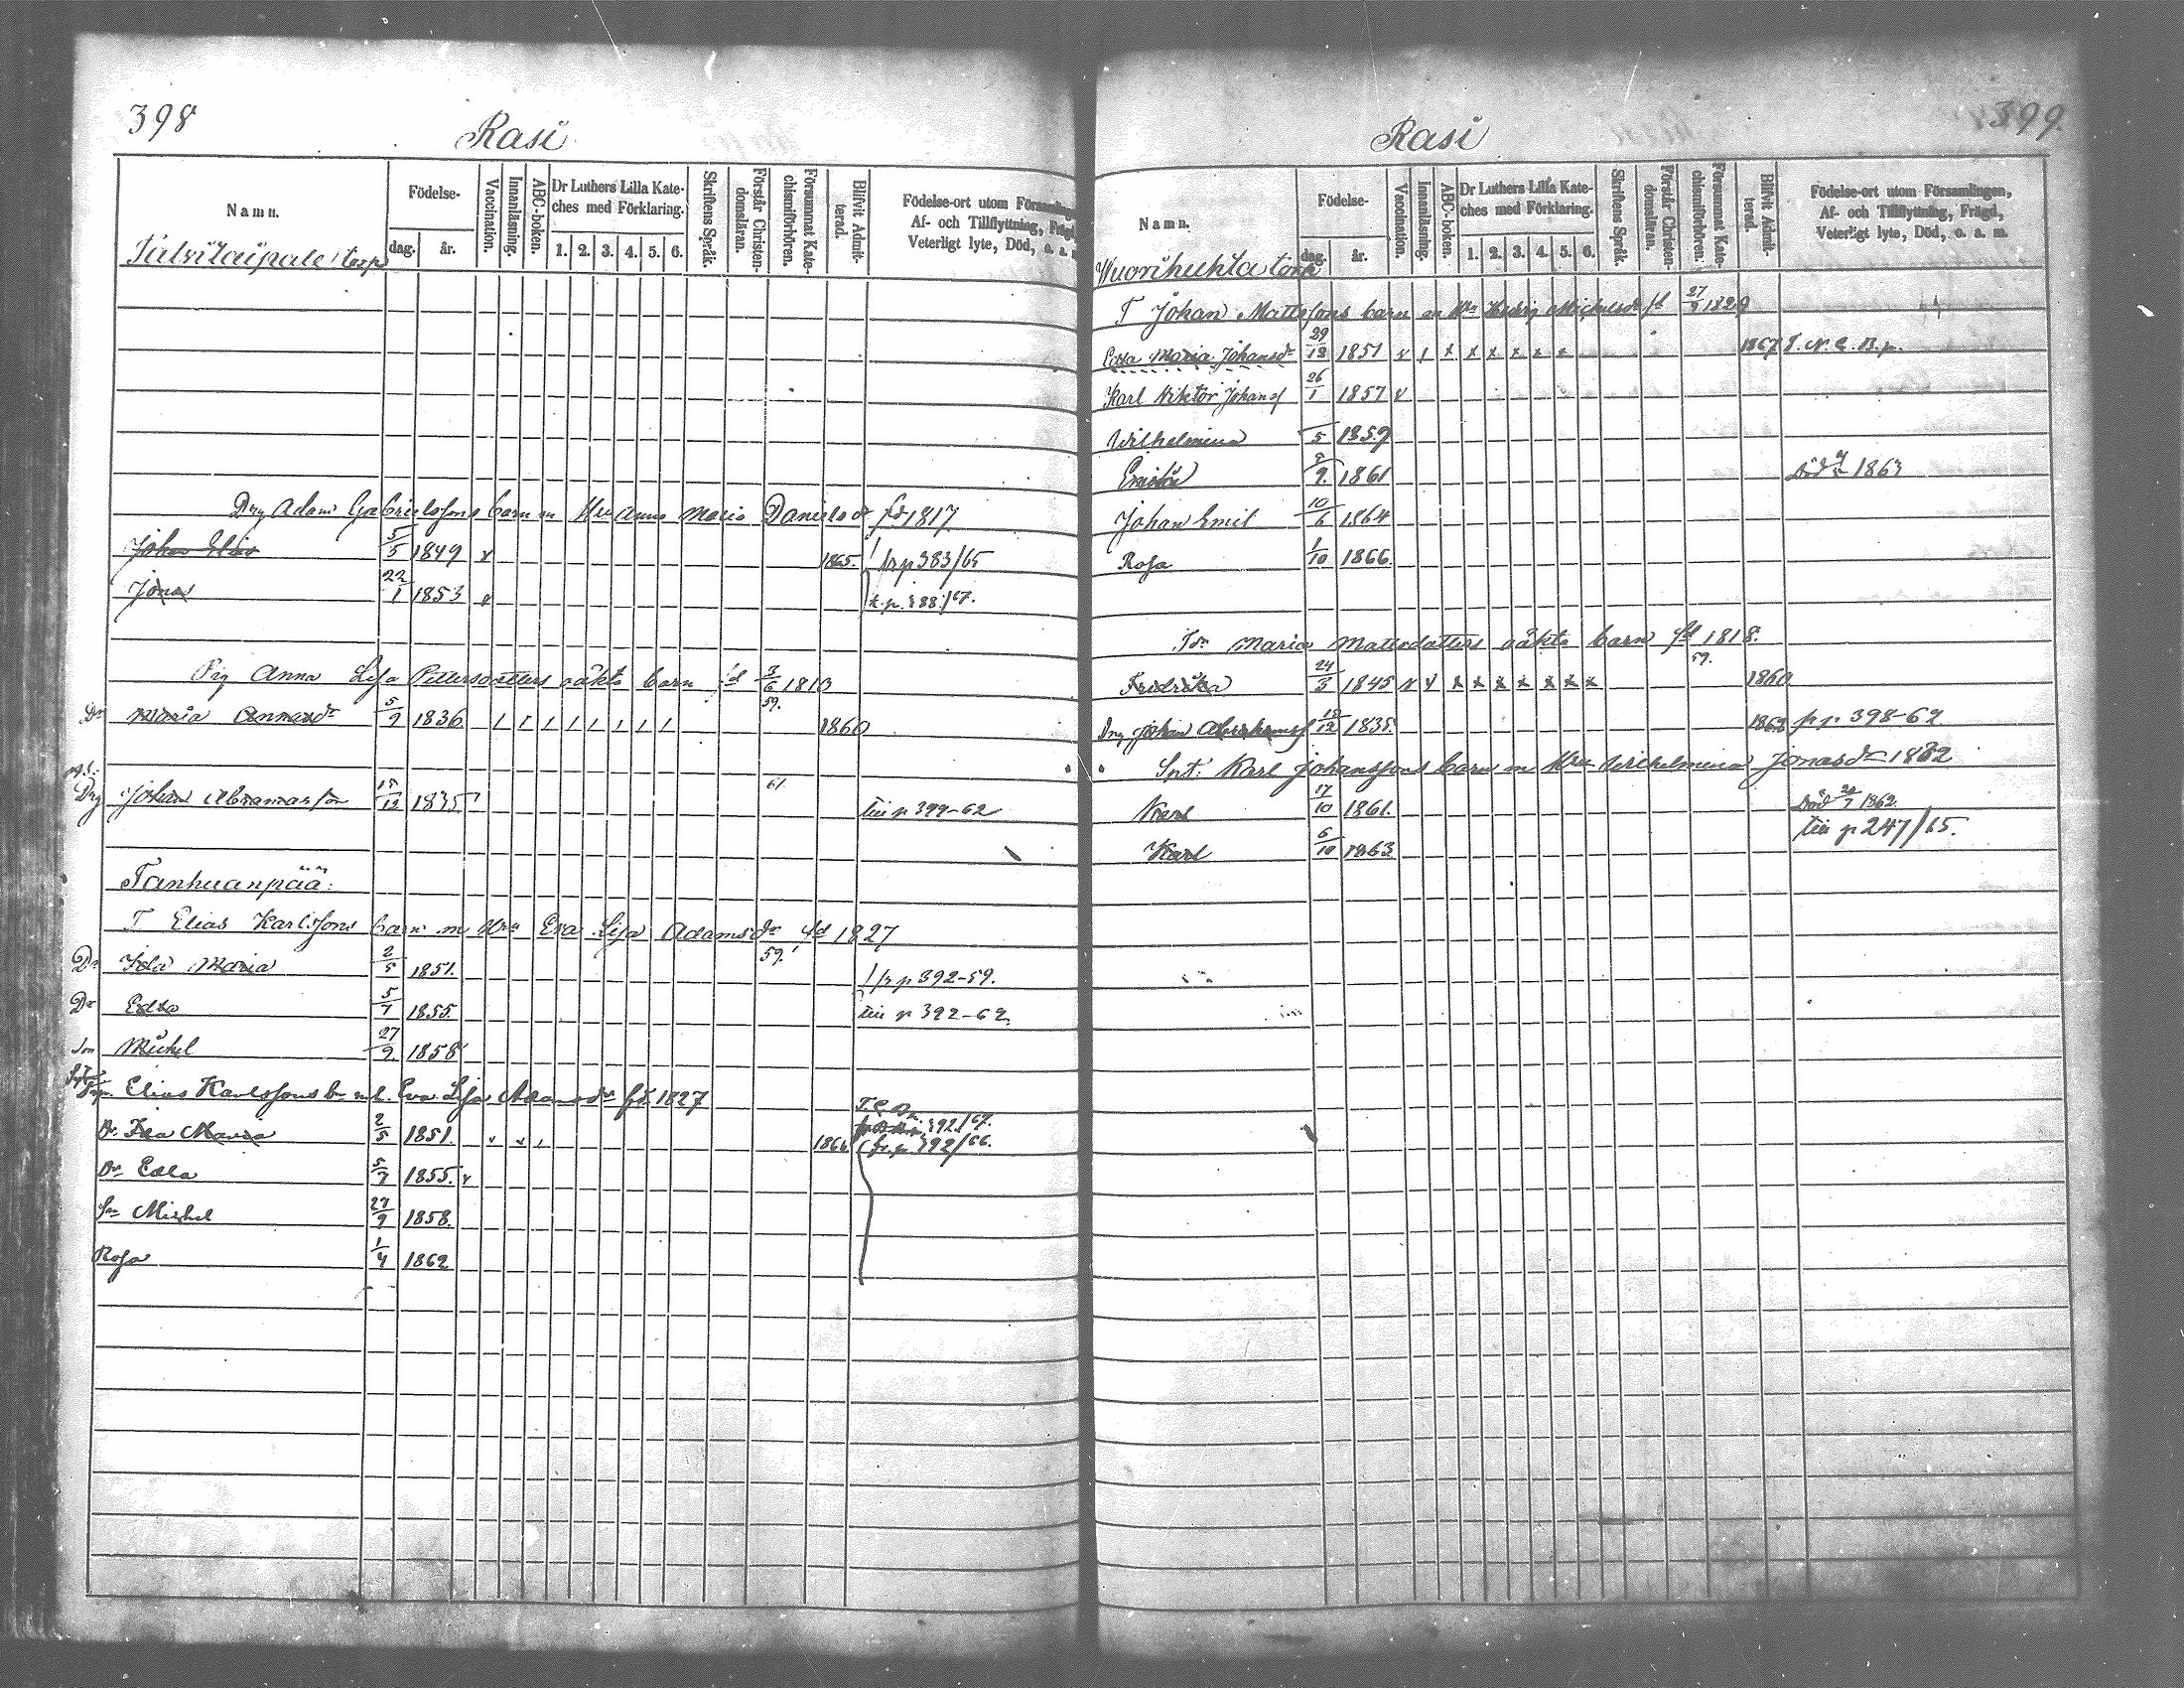 398
Rasi
Namn.
Födelse-
dag.
år.
Vaccination.
Innanläsning.
ABC-boken.
Dr Luthers Lilla Kate-
ches med Förklaring.
1. 2. 3. 4. 5. 6.
Skriftens Språk.
Förstår Christen-
domsläran.
Försummat Kate-
chismiförhören.
Blifvit Admit-
terad.
Födelse-ort utom Församlingen
Af- och Tillflyttning, Frägd,
Veterligt lyte, Död, o. a. m
torp
Drg Adam Gabrielssons barn m Hru Anna Maria Danielsdr fd 1817
Johan Elias 5/5 1849 v 1865. fr p 383/65
Jona 22/1 1853 v t. p. 388/67.
Pig Anna Lisa Pettersdotters oäkta barn fd 3/6 1810
59.
Dr Maria Annasdr 5/9 1836 1 1 1 1 1 1 1 1 1860
Drg Johan Abramsson 18/12 1835 61. till p 399-62
Tanhuanpää:
T Elias Karlssons barn m Hru Eva Lisa Adamsdr fd 1827
59.
Dr Ida Maria 2/5 1851. fr p 392-59.
Dr Edla 5/7 1855. till p 392-62.
Son Mickel 27/9 1858
Elias Karlssons bn m h. Eva Lisa Adamsdr fd. 1827
Dr. Ida Maria 2/5 1851. v v 1 1866 fr. p 392/66.
392/67.
Dr Edla 5/7 1855. v
Sn Mickel 27/9 1858.
Rosa 1/4 1862
399.
Rasi
Namn.
Födelse-
dag.
år.
Vaccination.
Innanläsning.
ABC-boken.
Dr Luthers Lilla Kate-
ches med Förklaring.
1. 2. 3. 4. 5. 6.
Skriftens Språk.
Förstår Christen-
domsläran.
Försummat Kate-
chismiförhören.
Blifvit Admit-
terad.
Födelse-ort utom Församlingen,
Af- och Tillflyttning, Frägd,
Veterligt lyte, Död, o. a. m.
Wuorihuhta torp
T Johan Mattssons barn m Hru Hedvig Michelsdr fd 27/9 1829
Maria Johansdr 29/12 1851 v 1 x x x x x x 1867 T. N. C. B. p.
Karl Viktor Johanss 26/1 1857 v
Wilhelmina /5 1859
9. 1861 Död 1863
Johan Emil 10/6 1864
Rosa 1/10 1866.
Maria Mattsdotters oäkta barn fd 1818.
59.
Fredrika 24/3 1845 v v x x x x x x x 1860
Drg Johan Abrahamss 18/12 1835. 1862 p p. 398-62
Spt. Karl Johanssons barn m Hru Wilhelmina Jonasdr 1832
Karl 17/10 1861. Död 24/7 1862.
Karl 6/10 1863 till p 247/65.